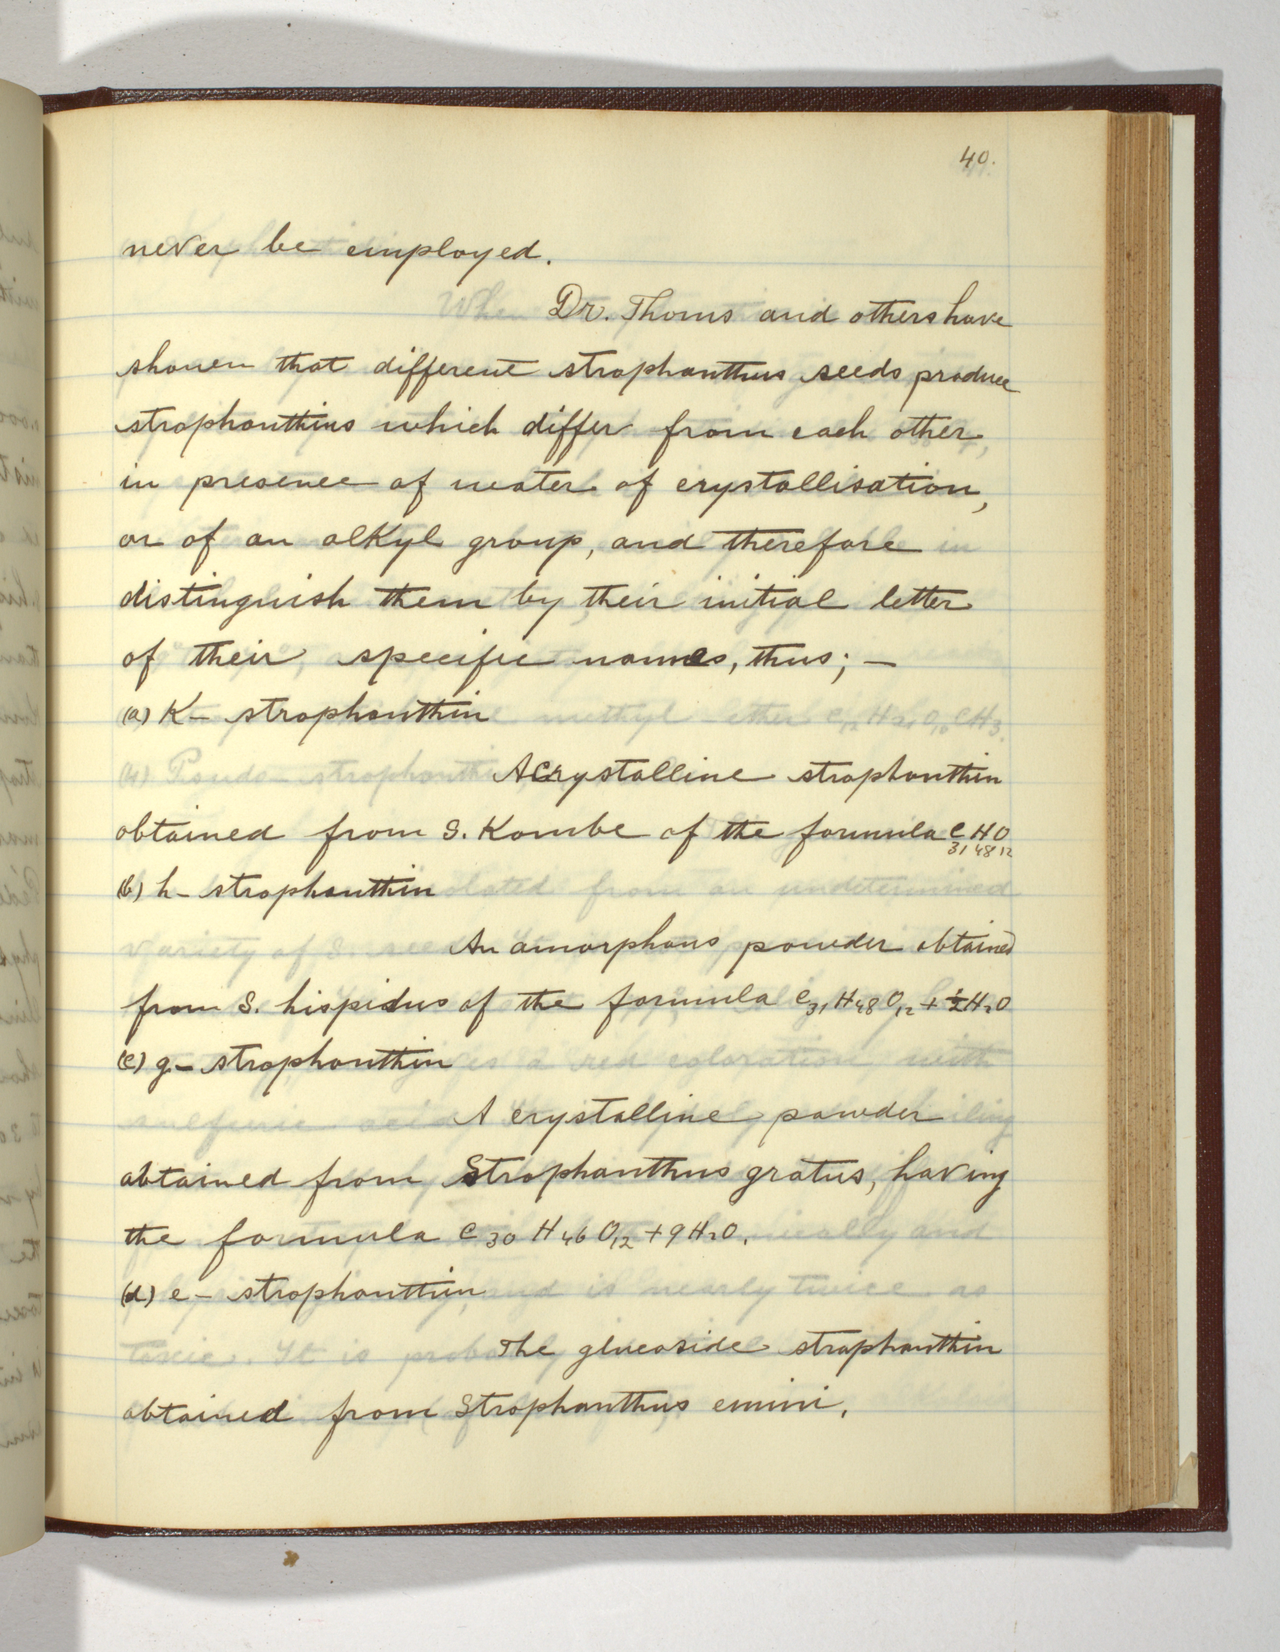 40.
never be employed.
Dr. Thoms and others have
shown that different strophanthus seeds produce
strophanthins which differ from each other,
in presence of water of crystallisation,
or of an alkyl group, and therefore
distinguish them by their initial letter
of their specific names, thus; —
(a) K- strophanthin
A crystalline strophanthin
obtained from S. Kombe of the formula C31H48O12
(b) h- strophanthin
An amorphous powder obtained
from S. hispidus of the formula C31H48O12 + ½H2O
(c) g- strophanthin
A crystalline powder
obtained from Strophanthus gratus, having
the formula C30H46O12 + 9H2O.
(d) e- strophanthin
The glucoside strophanthin
obtained from Strophanthus emini.